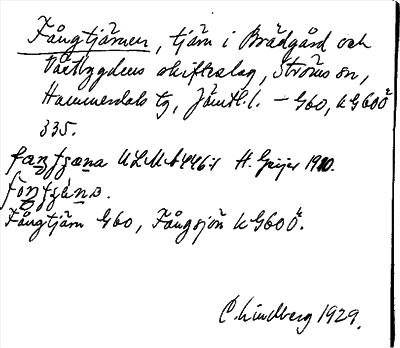 Fångtjärnen, tjärn i Brädgård och
Västbygdens skifteslag, Ströms sn,
Hammerdals tg, Jämtl. l. – G60, kG60Ö
335.
ULMA 446:1 H. Geijer 1910.
Fångtjärn G60, Fångsjön kG60Ö.
C. Lindberg 1929.